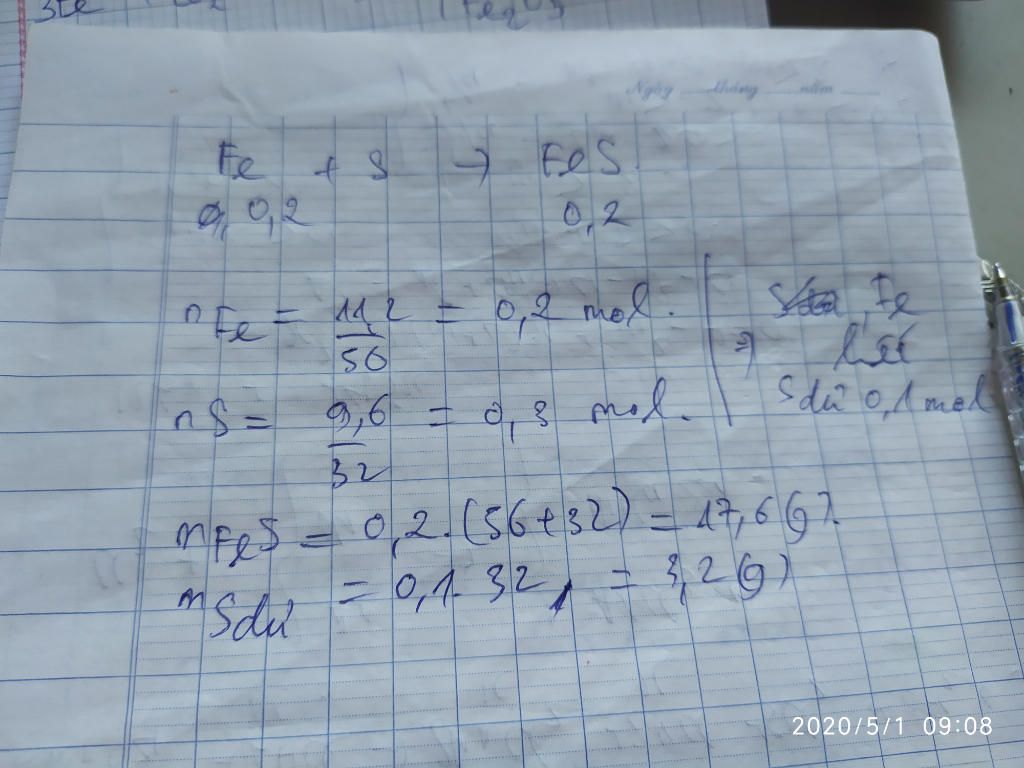 Ngày tháng năm
Fe + S → FeS
0,2 0,2
nFe = 11,2 / 56 = 0,2 mol.
nS = 9,6 / 32 = 0,3 mol.
⇒ Fe hết
S dư 0,1 mol
mFeS = 0,2.(56+32) = 17,6(g).
mS dư = 0,1.32 = 3,2(g)
2020/5/1 09:08